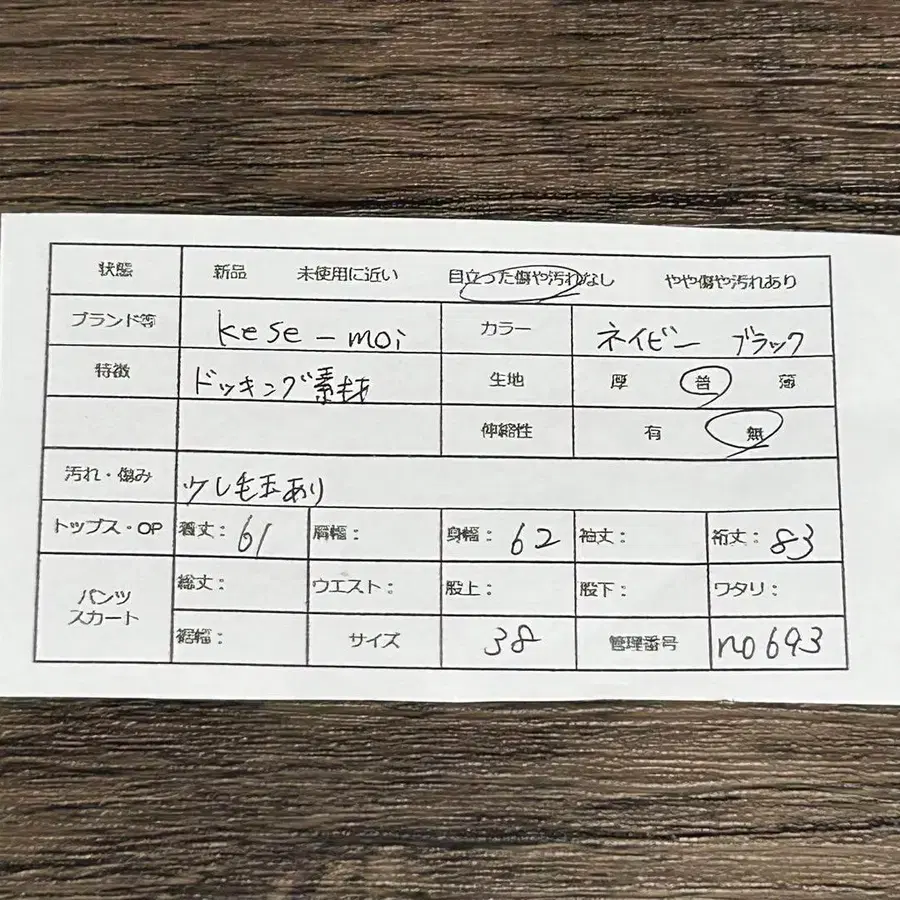 状態 新品 未使用に近い 目立った傷や汚れなし やや傷や汚れあり
ブランド等 kese-moi カラー ネイビー ブラック
特徴 ドッキング素材 生地 厚 普 薄
伸縮性 有 無
汚れ・傷み 少し毛玉あり
トップス・OP 着丈: 61 肩幅: 身幅: 62 袖丈: 裄丈: 83
パンツ スカート 総丈: ウエスト: 股上: 股下: ワタリ:
裾幅: サイズ 38 管理番号 no693